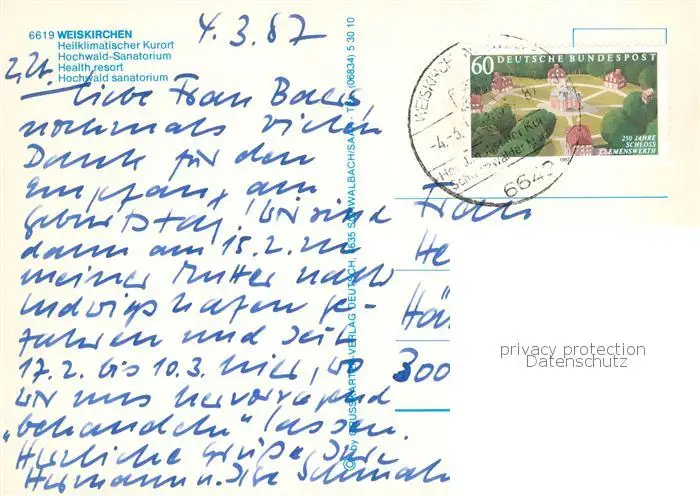 6619 WEISKIRCHEN
Heilklimatischer Kurort
Hochwald-Sanatorium
Health resort
Hochwald sanatorium
4.3.87
z.Zt.
Liebe Frau
nochmals vielen
Dank für den
Empfang am
Geburtstag! Wir sind
dann am 15.2. zu
meiner Mutter nach
Ludwigshafen ge-
fahren und seit
17.2. bis 10.3. hier, wo
wir uns hervorragend
"behandeln" lassen.
Herzliche Grüße, Ihre
Hermann u. Ilse
© by KRUSSKARTENVERLAG DEUTSCH, 6635 SCHWALBACH/SAAR · Tel. (06834) 5 30 10
60 DEUTSCHE BUNDESPOST
250 JAHRE
SCHLOSS
CLEMENSWERTH
1987
WEISKIRCHEN
-4.-3.
6649
Frau
He
Hä
300
privacy protection
Datenschutz